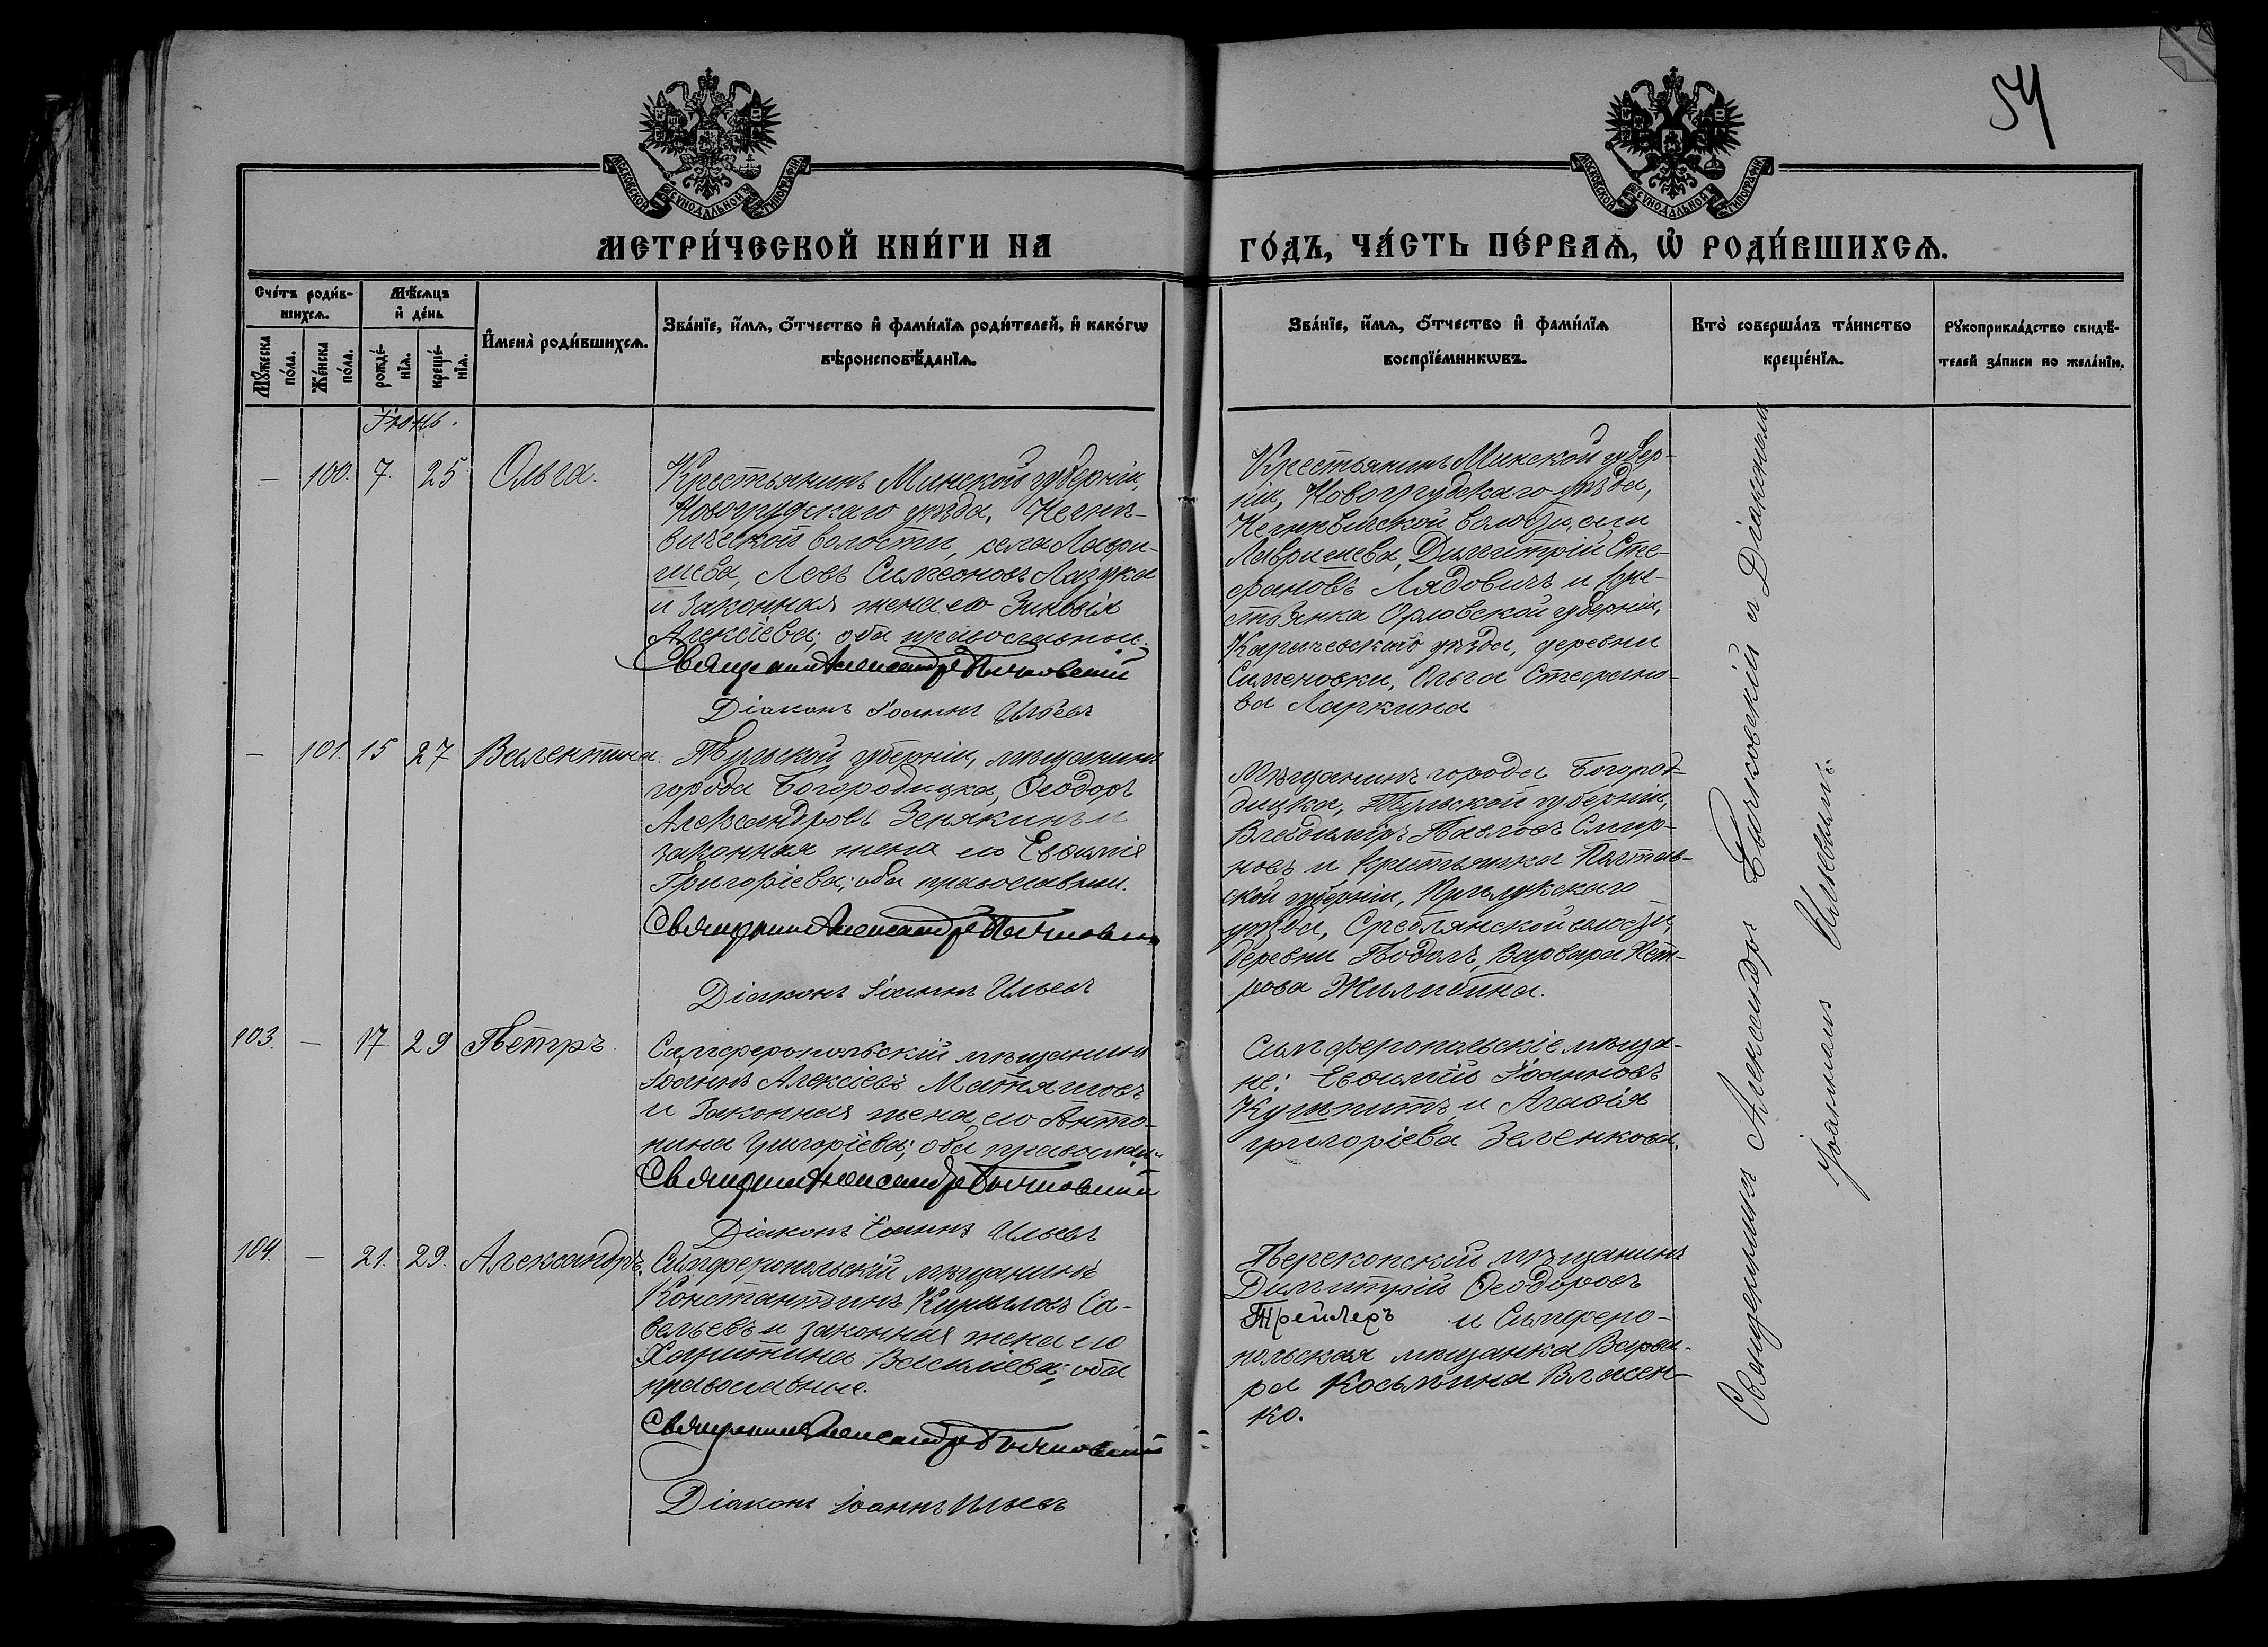 54
МОСКОВСКОЙ СѴНОДАЛЬНОЙ ТИПОГРАФІИ
МОСКОВСКОЙ СѴНОДАЛЬНОЙ ТИПОГРАФІИ
МЕТРИ́ЧЕСКОЙ КНИ́ГИ НА
ГО́ДЪ, ЧА́СТЬ ПЕ́РВАѦ, Ѡ҆ РОДИ́ВШИХСѦ.
Сче́тъ роди́в-
шихсѧ.
Мѣ́сѧцъ
и҆ де́нь
Мꙋ́жеска
по́ла.
Же́нска
по́ла.
рожде́-
нїѧ.
креще́-
нїѧ.
И҆мена̀ роди́вшихсѧ.
Зва́нїе, и҆́мѧ, ѻ҆́тчество и҆ фами́лїѧ роди́телей, и҆ како́гѡ
вѣроисповѣ́данїѧ.
Зва́нїе, и҆́мѧ, ѻ҆́тчество и҆ фами́лїѧ
воспрїе́мникѡвъ.
Кто̀ соверша́лъ та́инство
креще́нїѧ.
Рꙋкоприкла́дство свидѣ́-
телей за́писи по жела́нїю.
Іюнь.
— 100. 7. 25 Ольга.
Крестьянинъ Минской губерніи,
Новогрудскаго уѣзда, Негнѣ-
вической волости, села Лаври-
шева, Левъ Симеоновъ Лазука
и законная жена его Зиновія
Алексіева; оба православные.
Священникъ Александръ Бычковскій
Діаконъ Іоаннъ Ильевъ
Крестьянинъ Минской губер-
ніи, Новогрудскаго уѣзда,
Негнѣвической волости, села
Лавришева, Димитрій Сте-
фановъ Лядовичъ и кре-
стьянка Орловской губерніи,
Карачевскаго уѣзда, деревни
Сименовки, Ольга Стефано-
ва Ларкина
— 101. 15 27 Валентина.
Тульской губерніи, мѣщанинъ
города Богородицка, Ѳеодоръ
Александровъ Зенякинъ и
законная жена его Евѳимія
Григоріева; оба православные.
Священникъ Александръ Бычковскій
Діаконъ Іоаннъ Ильевъ
Мѣщанинъ города Богоро-
дицка, Тульской губерніи,
Владиміръ Павловъ Смир-
новъ и крестьянка Полтав-
ской губерніи, Прилукскаго
уѣзда, Сребрянской волости,
деревни Подолъ, Варвара Пет-
рова Жилибина.
103. — 17. 29 Петръ.
Симферопольскій мѣщанинъ
Іоаннъ Алексіевъ Матяшовъ
и законная жена его Анто-
нина Григоріева; оба православн.
Священникъ Александръ Бычковскій
Діаконъ Іоаннъ Ильевъ
Симферопольскіе мѣща-
не: Евѳимій Іоанновъ
и Агаѳія
Григоріева Зеленкова.
104. — 21. 29. Александръ.
Симферопольскій мѣщанинъ
Константинъ Кириловъ Са-
вельевъ и законная жена его
Харитина Василіева; оба
православные.
Священникъ Александръ Бычковскій
Діаконъ Іоаннъ Ильевъ
Перекопскій мѣщанинъ
Димитрій Ѳеодоровъ
Трейлеръ и Симферо-
польская мѣщанка Варва-
ра Косьмина Власен-
ко.
Священникъ Александръ Бычковскій и Діаконъ
Іоаннъ Ильевъ